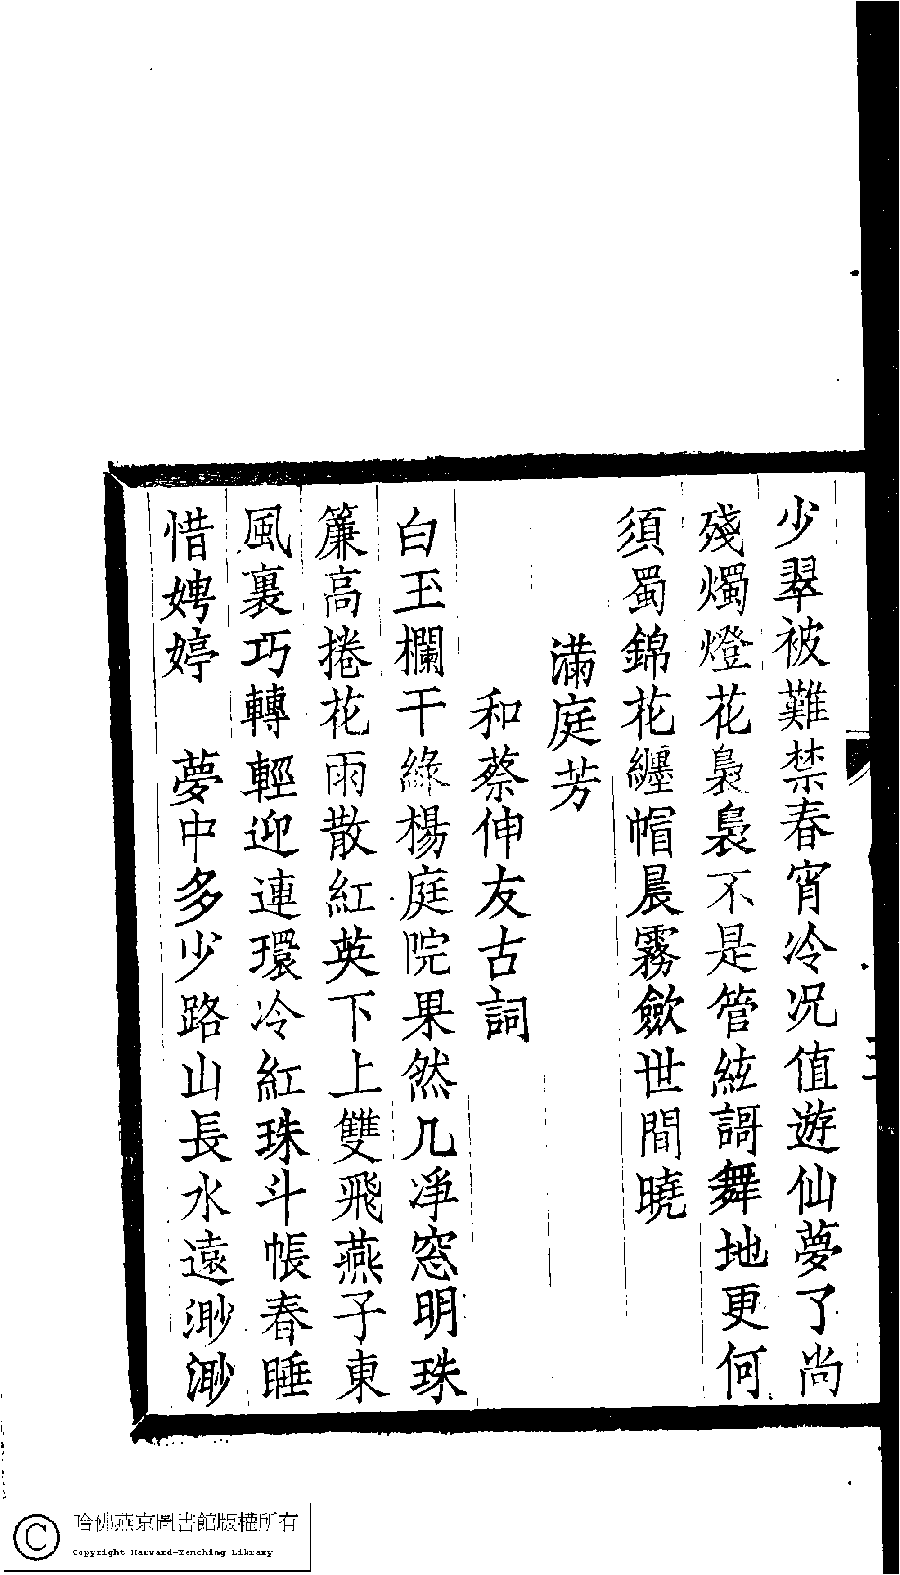 少翠被難禁春宵冷况值遊仙夢了尚
殘燭燈花裊裊不是管絃謌舞地更何
須蜀錦花纏帽晨霧斂世間曉
滿庭芳
和蔡伸友古詞
白玉欄干綠楊庭院果然几凈窓明珠
簾高捲花雨散紅英下上雙飛燕子東
風裏巧轉輕迎連環冷紅珠斗帳春睡
惜娉婷　夢中多少路山長水遠渺渺
哈佛燕京圖書館版權所有
Copyright Harvard-Yenching Library